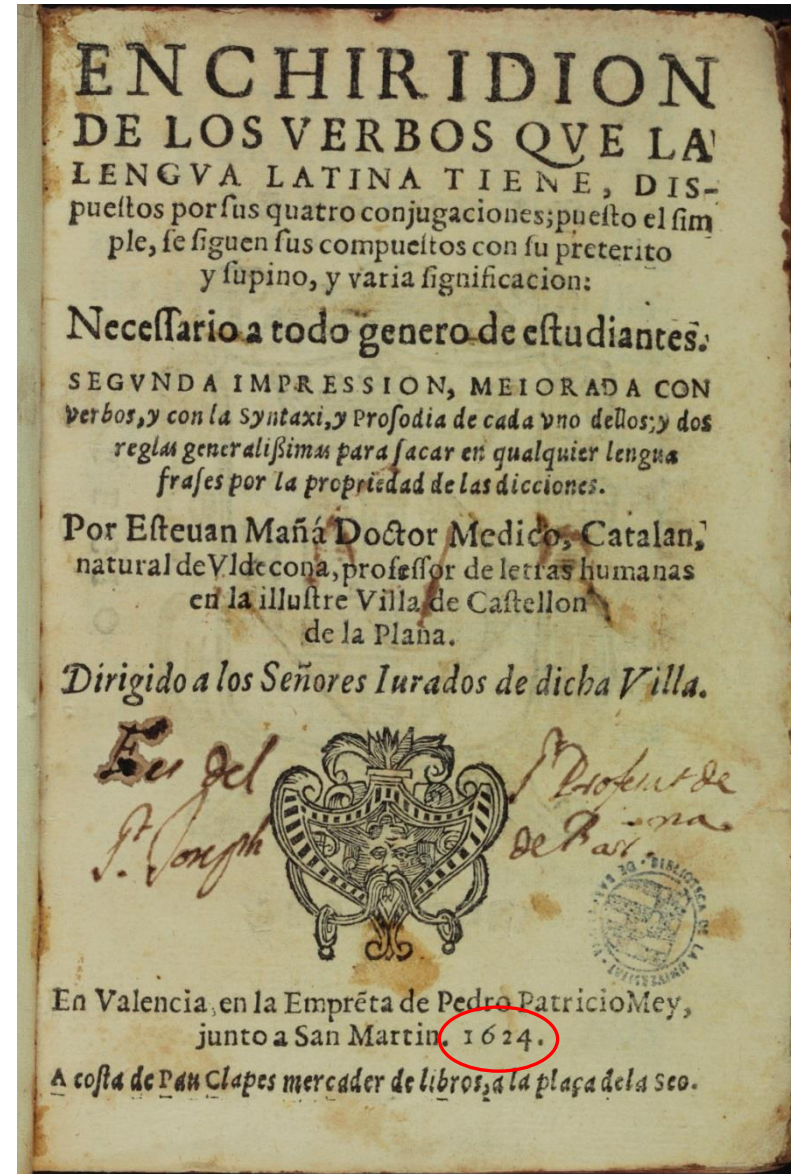 ENCHIRIDION
DE LOS VERBOS QVE LA
LENGVA LATINA TIENE, DIS-
pueſtos por ſus quatro conjugaciones; pueſto el ſim
ple, ſe ſiguen ſus compueſtos con ſu preterito
y ſupino, y varia ſignificacion:
Neceſſario a todo genero de eſtudiantes.
SEGVNDA IMPRESSION, MEIORADA CON
verbos, y con la Syntaxi, y Proſodia de cada vno dellos; y dos
reglas generalißimas para ſacar en qualquier lengua
fraſes por la propriedad de las dicciones.
Por Eſteuan Mañá Doctor Medico, Catalan,
natural de Vldecona, profeſſor de letras humanas
en la illuſtre Villa de Caſtellon
de la Plana.
Dirigido a los Señores Iurados de dicha Villa.
Es del
P. Joseph
de
de
BIBLIOTECA DE LA
En Valencia, en la Emprẽta de Pedro Patricio Mey,
junto a San Martin. 1624.
A coſta de Pau Clapes mercader de libros, a la plaça dela Seo.